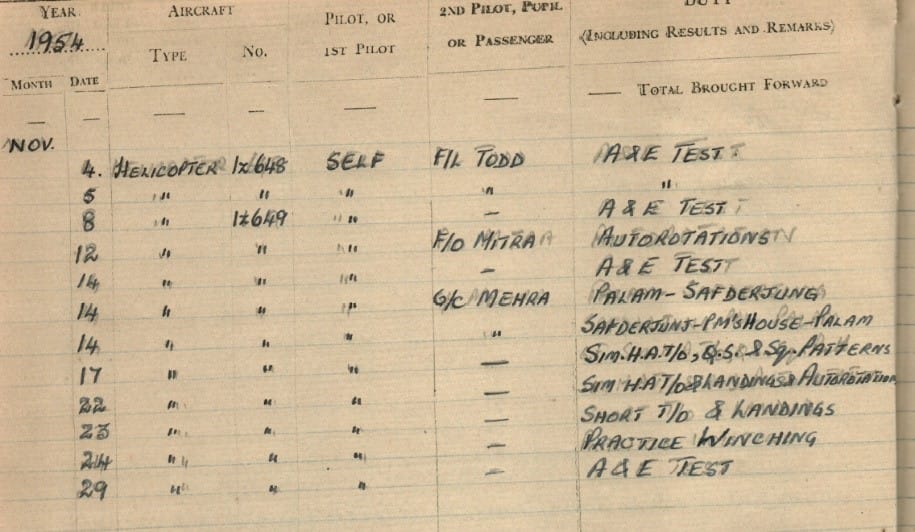 YEAR AIRCRAFT PILOT, OR 2ND PILOT, PUPIL DUTY
1954 TYPE No. 1ST PILOT OR PASSENGER (INCLUDING RESULTS AND REMARKS)
MONTH DATE
— — — — — — — TOTAL BROUGHT FORWARD
NOV.
4. HELICOPTER IZ648 SELF F/L TODD A & E TEST
5 " " " " "
8 " IZ649 " — A & E TEST
12 " " " F/O MITRA AUTOROTATIONS
14 " " " — A & E TEST
14 " " " G/C MEHRA PALAM - SAFDERJUNG
14 " " " " SAFDERJUNJ-PM'S HOUSE-PALAM
17 " " " — SIM. H.A.T/O, Q.S. & SQ. PATTERNS
22 " " " — SIM H.A T/O & LANDINGS & AUTOROTATION
23 " " " — SHORT T/O & LANDINGS
24 " " " — PRACTICE WINCHING
29 " " " — A & E TEST